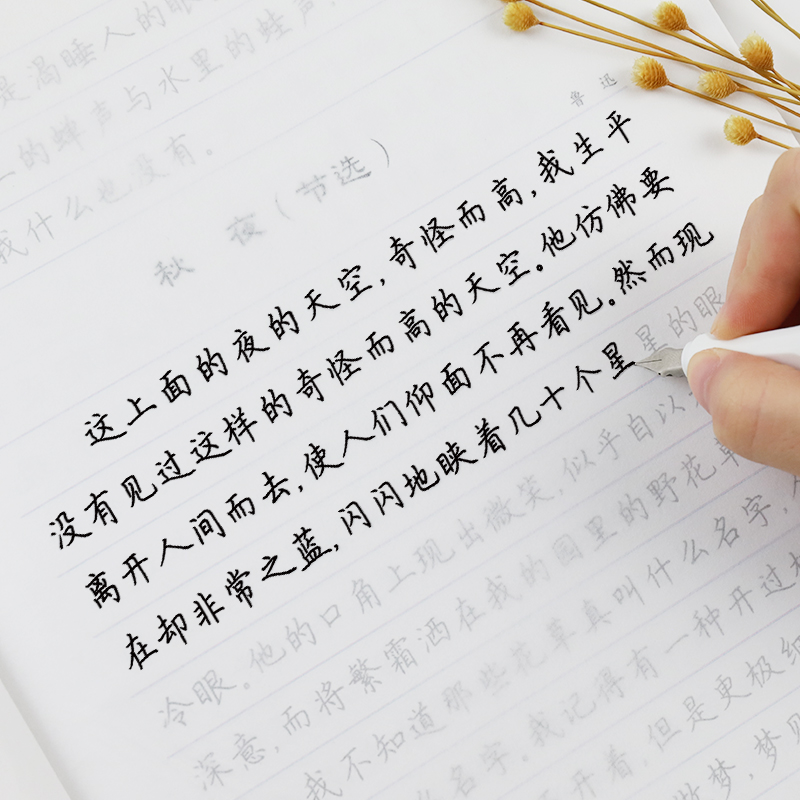 是渴睡人的眼
的蝉声与水里的蛙声
我什么也没有。
秋 夜（节选）
鲁迅
这上面的夜的天空,奇怪而高,我生平
没有见过这样的奇怪而高的天空。他仿佛要
离开人间而去,使人们仰面不再看见。然而现
在却非常之蓝,闪闪地䀹着几十个星星的眼
冷眼。他的口角上现出微笑,似乎自以
深意,而将繁霜洒在我的园里的野花草
我不知道那些花草真叫什么名字,
名字。我记得有一种开过极
开着,但是更极细
做梦,梦见